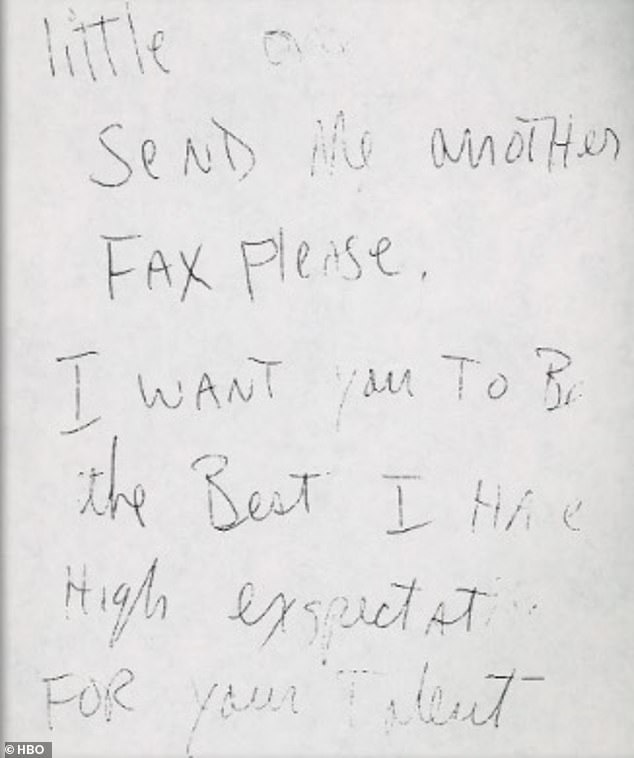 little
Send Me another
FAX Please.
I WANT you To Be
the Best I Have
High
FOR your Talent
©HBO